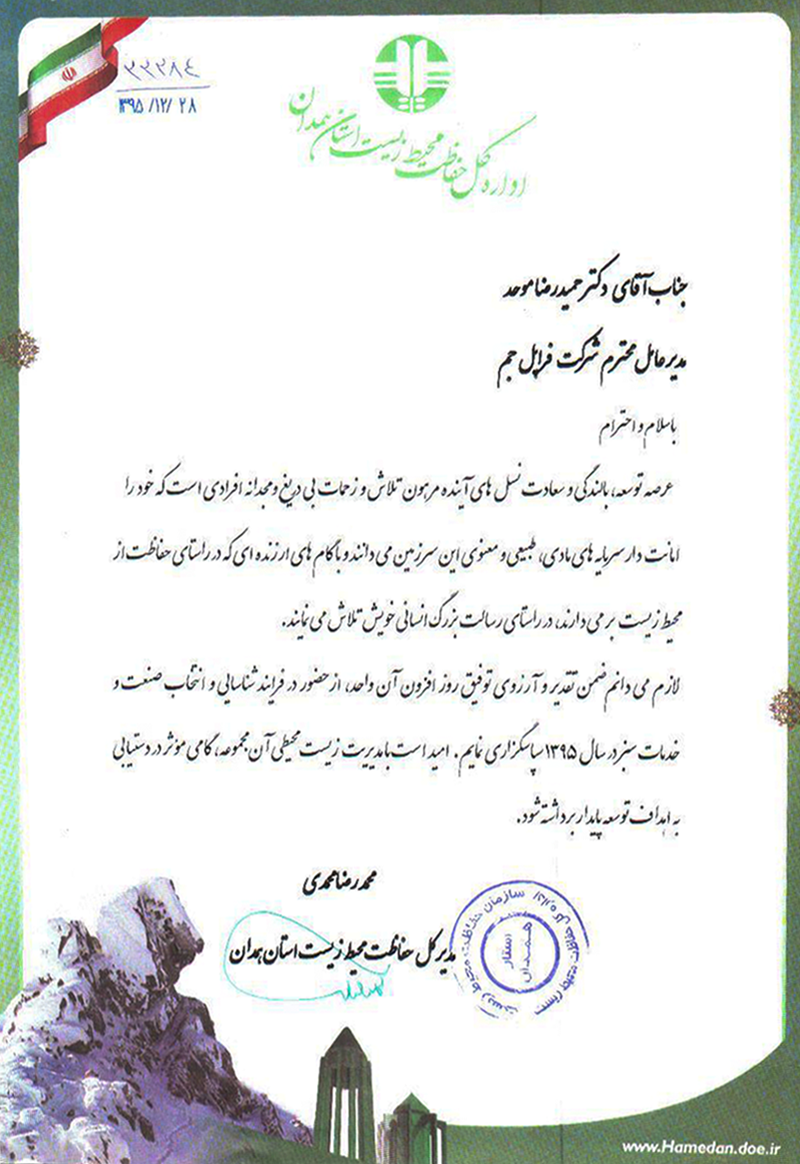 ۲۲۲۸۴
۱۳۹۵/۱۲/۲۸
اداره کل حفاظت محیط زیست استان همدان
جناب آقای دکتر حمیدرضا موحد
مدیرعامل محترم شرکت فراپل جم
باسلام و احترام
عرصه توسعه، بالندگی و سعادت نسل های آینده مرهون تلاش و زحمات بی دریغ و مجدانه افرادی است که خود را
امانت دار سرمایه های مادی، طبیعی و معنوی این سرزمین می دانند و با گام های ارزنده ای که در راستای حفاظت از
محیط زیست بر می دارند، در راستای رسالت بزرگ انسانی خویش تلاش می نمایند.
لازم می دانم ضمن تقدیر و آرزوی توفیق روز افزون آن واحد، از حضور در فرایند شناسایی و انتخاب صنعت و
خدمات سبز در سال ۱۳۹۵ سپاسگزاری نمایم. امید است با مدیریت زیست محیطی آن مجموعه، گامی مؤثر در دستیابی
به اهداف توسعه پایدار برداشته شود.
محمدرضا محمدی
مدیر کل حفاظت محیط زیست استان همدان
سازمان حفاظت محیط زیست
همدان
www.Hamedan.doe.ir